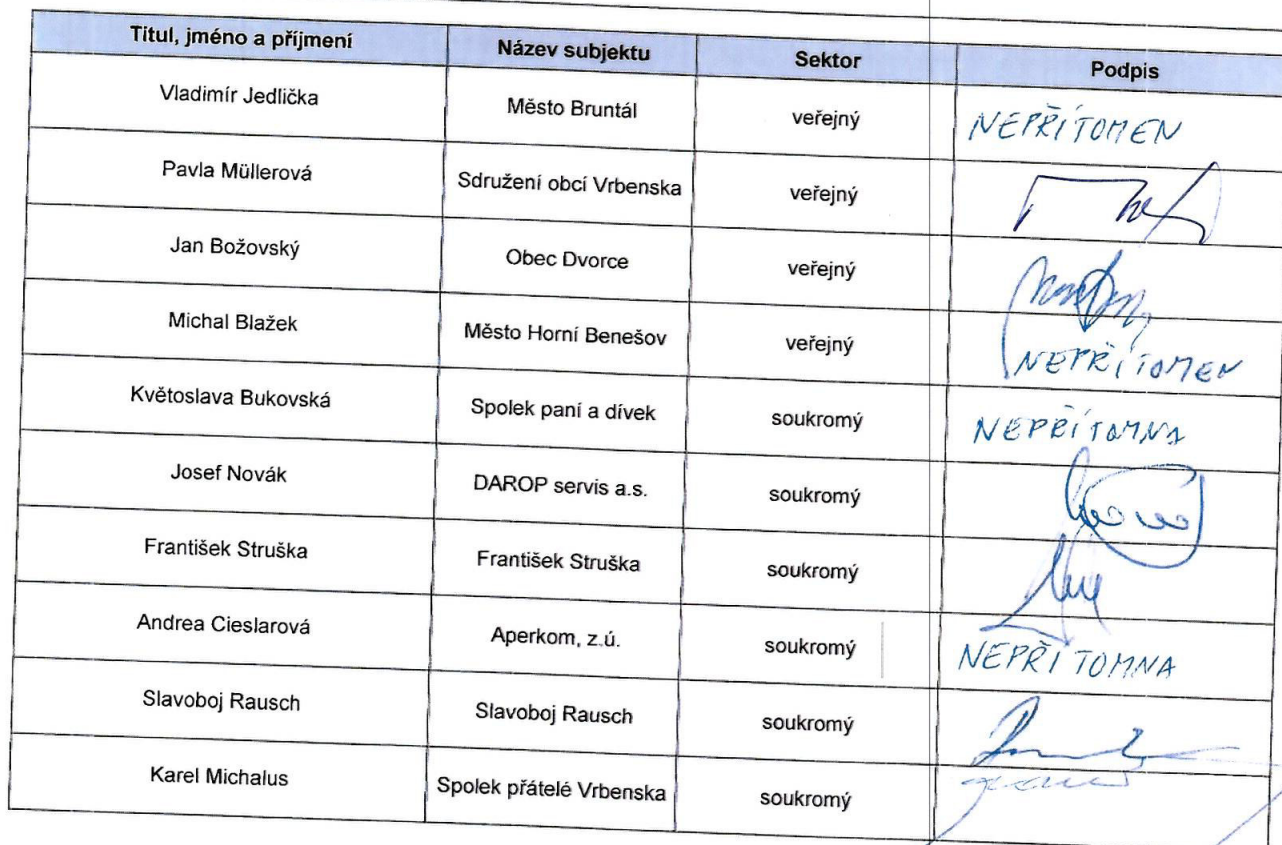 Titul, jméno a příjmení Název subjektu Sektor Podpis
Vladimír Jedlička Město Bruntál veřejný NEPŘÍTOMEN
Pavla Müllerová Sdružení obcí Vrbenska veřejný
Jan Božovský Obec Dvorce veřejný
Michal Blažek Město Horní Benešov veřejný NEPŘÍTOMEN
Květoslava Bukovská Spolek paní a dívek soukromý NEPŘÍTOMNA
Josef Novák DAROP servis a.s. soukromý
František Struška František Struška soukromý
Andrea Cieslarová Aperkom, z.ú. soukromý NEPŘÍTOMNA
Slavoboj Rausch Slavoboj Rausch soukromý
Karel Michalus Spolek přátelé Vrbenska soukromý